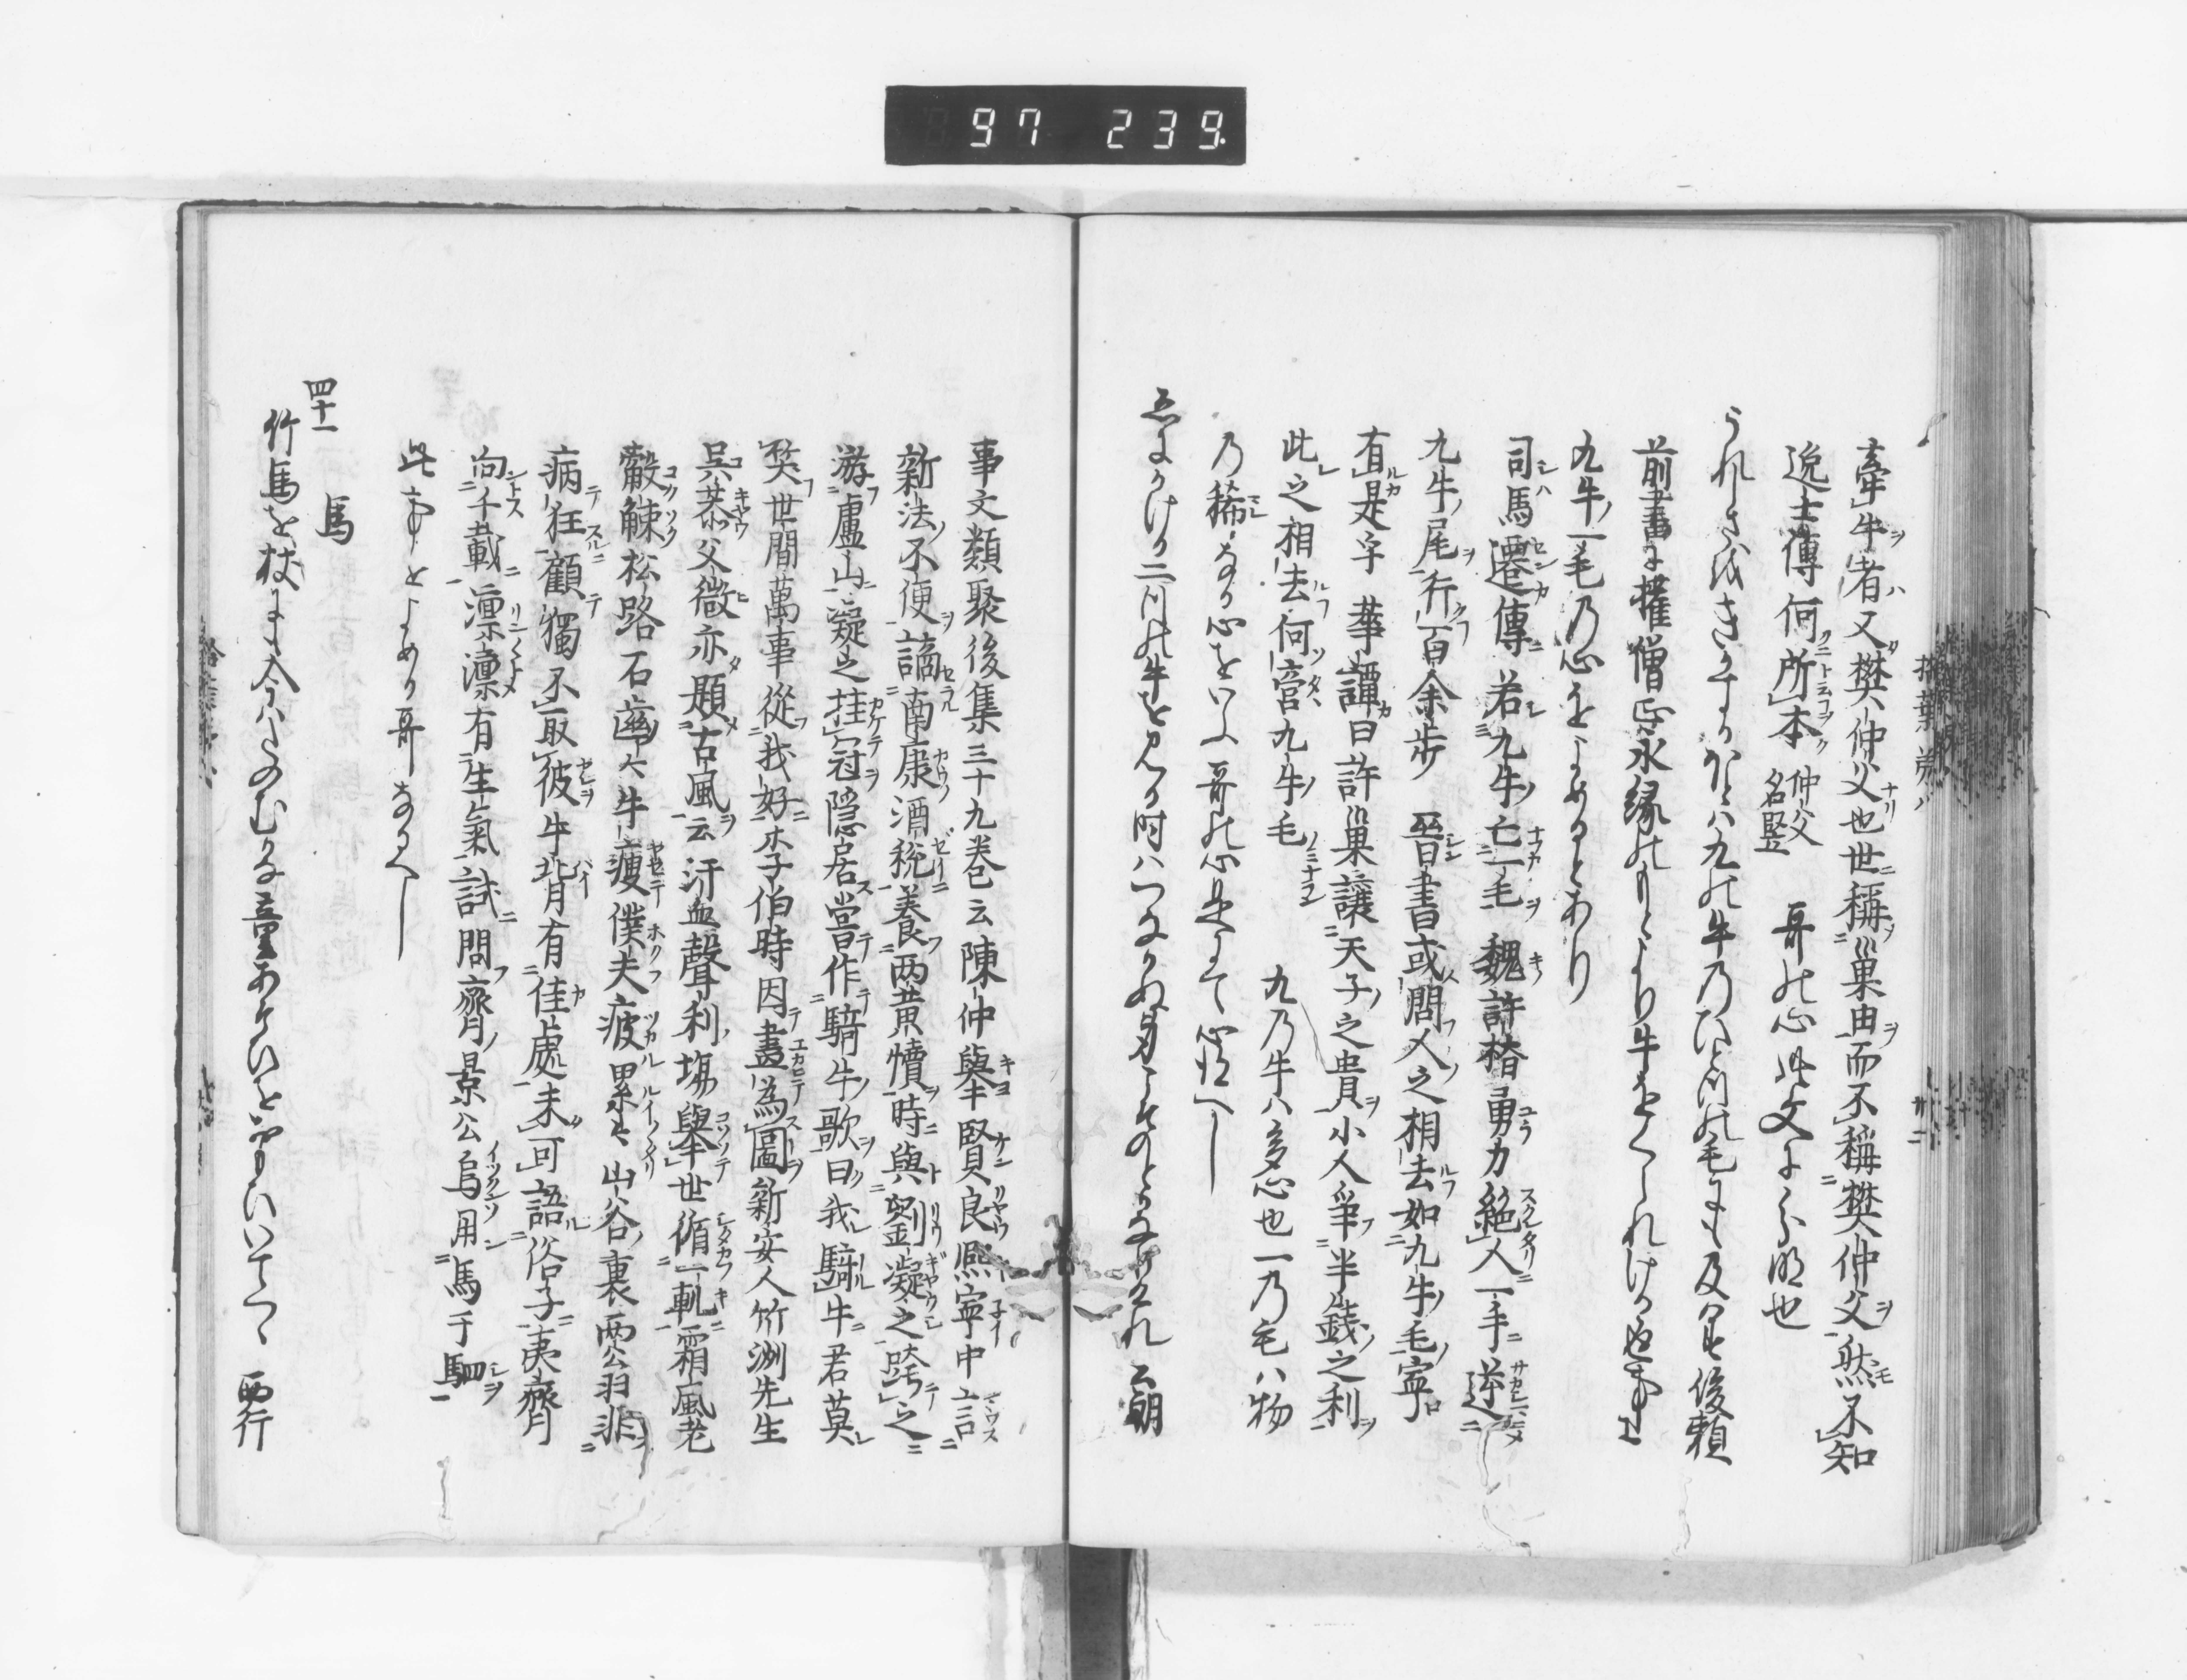 97 239
牽牛者又樊仲父也世稱巣由而不稱樊仲父然不知
逸士傳何所本 仲父名竪 哥の心此文よく分明也
うれしさはさかすかほとハ九の牛乃ひとつの毛にも及はし 俊頼
前書に権僧正永縁のもとより牛を
九牛一毛乃心をよめるとあり
司馬遷傳若九牛亡一毛 魏許楮勇力絶人一手逆
九牛尾行百余歩 晋書或問人之相去如九牛毛寧
有是乎 華譚曰許巣譲天子之貴小人爭半銭之利
此之相去何啻九牛毛 九乃牛ハ多心也一乃毛ハ物
乃稀なる心をいふ哥の心是にて心得へし
公朝
事文類聚後集三十九巻云陳仲擧賢良熈寧中言
新法不便謫南康酒税養两黄犢時與劉凝之跨之
游廬山凝之挂冠隠居嘗作騎牛歌曰我騎牛君莫
笑世間萬事從我好李伯時因畫為圖新安人竹洲先生
呉恭父微亦題古風云汗血聲利塲擧世循一軌霜風老
觳觫松路石齒々牛痩僕夫疲累々山谷裏两公羽非
病狂顧獨不取彼牛背有佳處未可語俗子夷齊
向千載凛凛有生氣試問齊景公烏用馬千駟
此事とよめる哥なるへし
四十一 馬
竹馬を杖にも今ハたのむかな童あそひをおもひいてつゝ 西行